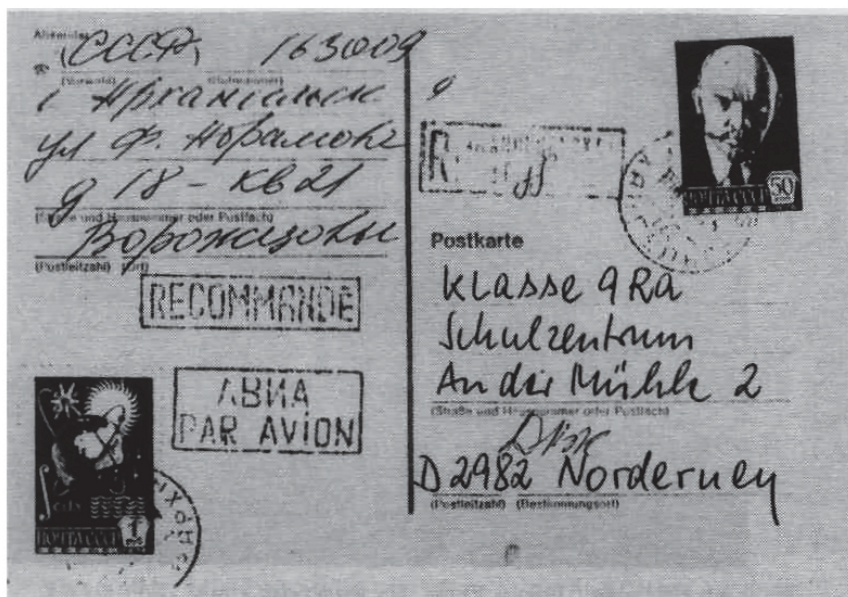 Absender
(СССР) 163009
(Vorwahl) (Rufnummer)
г Архангельск
ул Ф. Абрамова
д 18 - кв 21
(Straße und Hausnummer oder Postfach)
(Postleitzahl) (Ort)
RECOMMANDE
АВИА
PAR AVION
ПОЧТА СССР 1
R
ПОЧТА СССР 50
Postkarte
Klasse 9 Ra
Schulzentrum
An der Mühle 2
(Straße und Hausnummer oder Postfach)
D 2982 Norderney
(Postleitzahl) (Bestimmungsort)